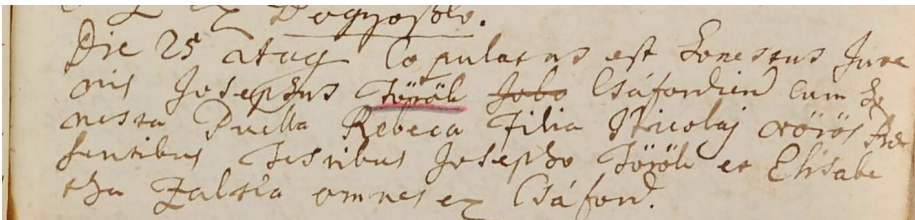 ex Dogyoslo.
Die 25 Aug Copulatus est honestus Juve
nis Josephus Török Jobo Csáfordien cum ho
nesta Puella Rebeca Filia Nicolaj Vörös Præ
sentibus Testibus Josepho Török et Elisabe
tha Zalkia omnes ex Csáford.